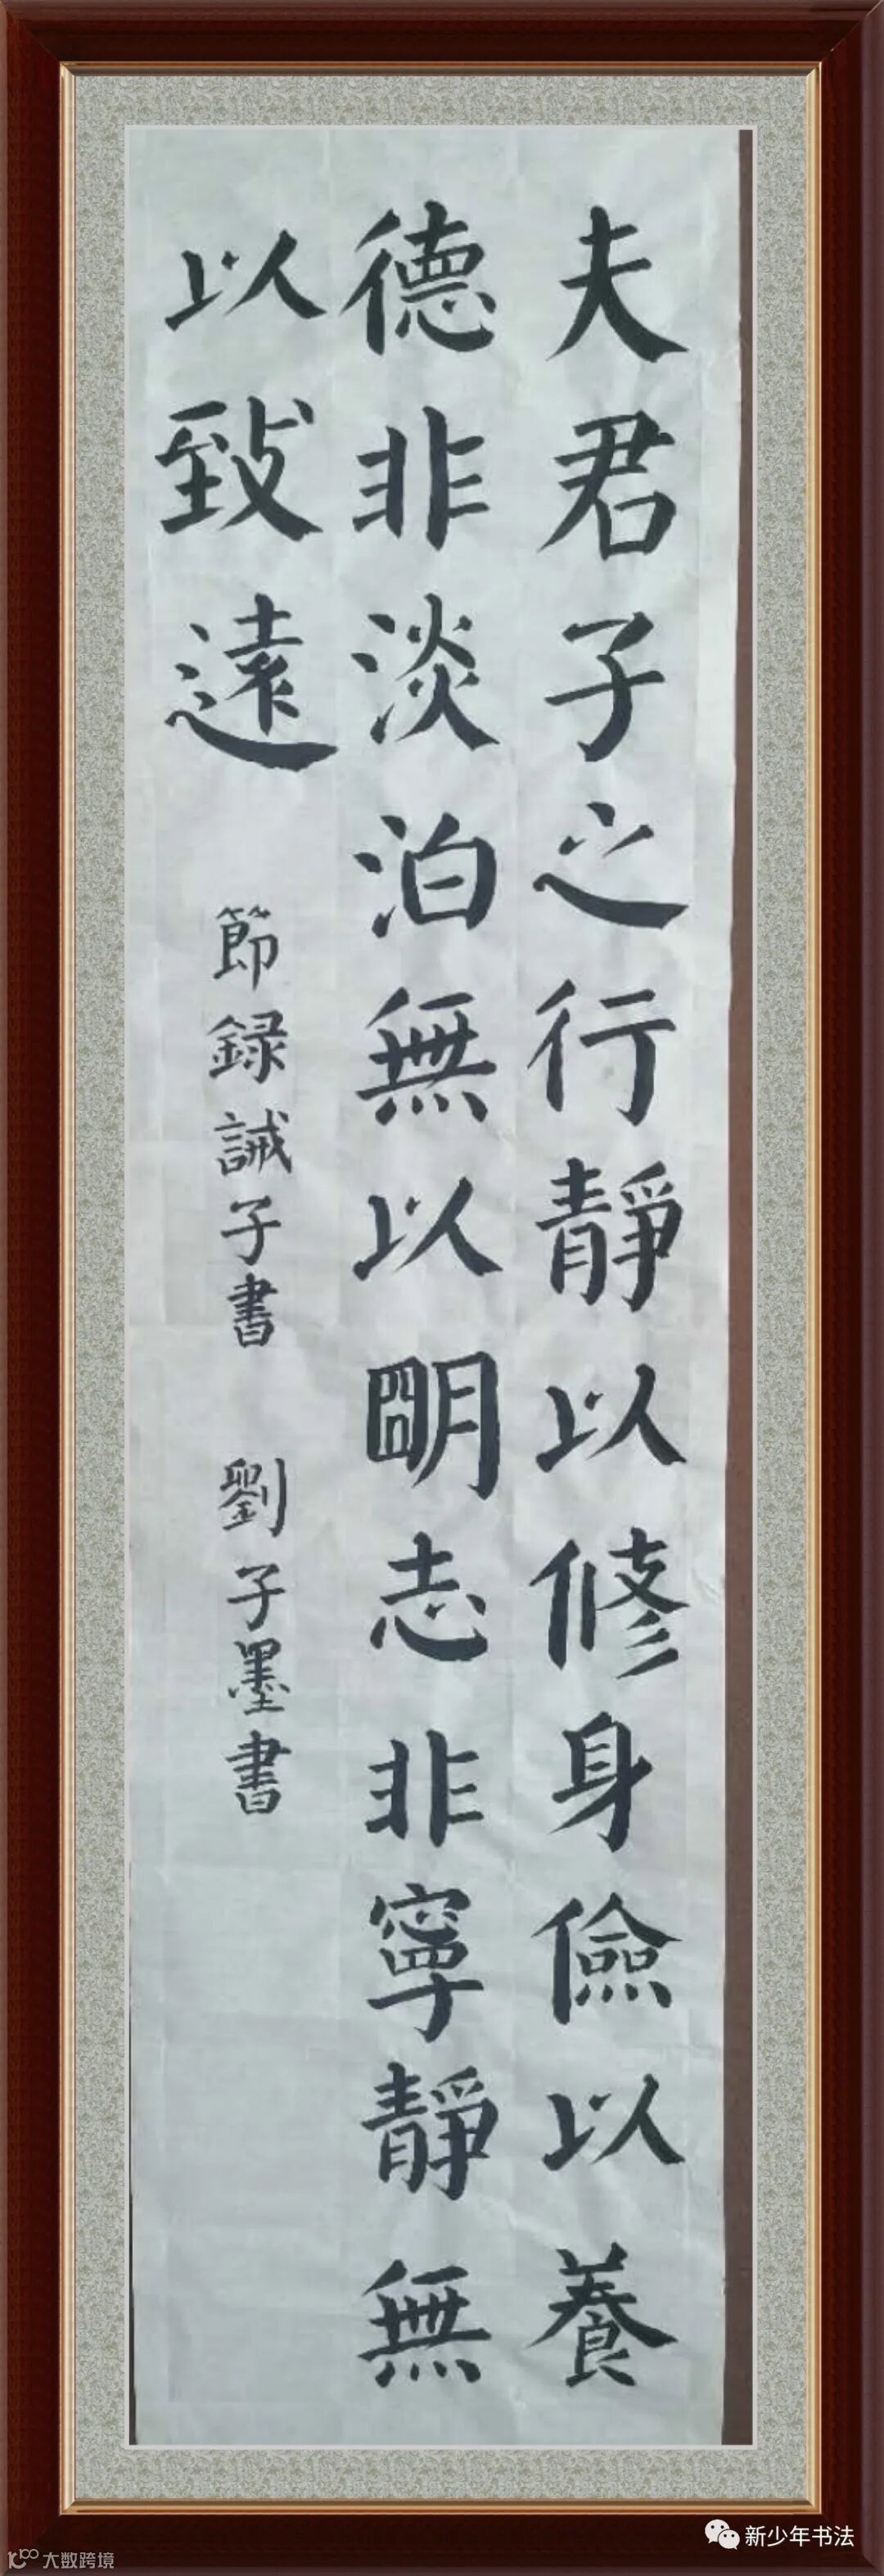 夫君子之行靜以修身儉以養
德非淡泊無以明志非寧靜無
以致遠
節録誡子書 劉子墨書
新少年书法
大数跨境